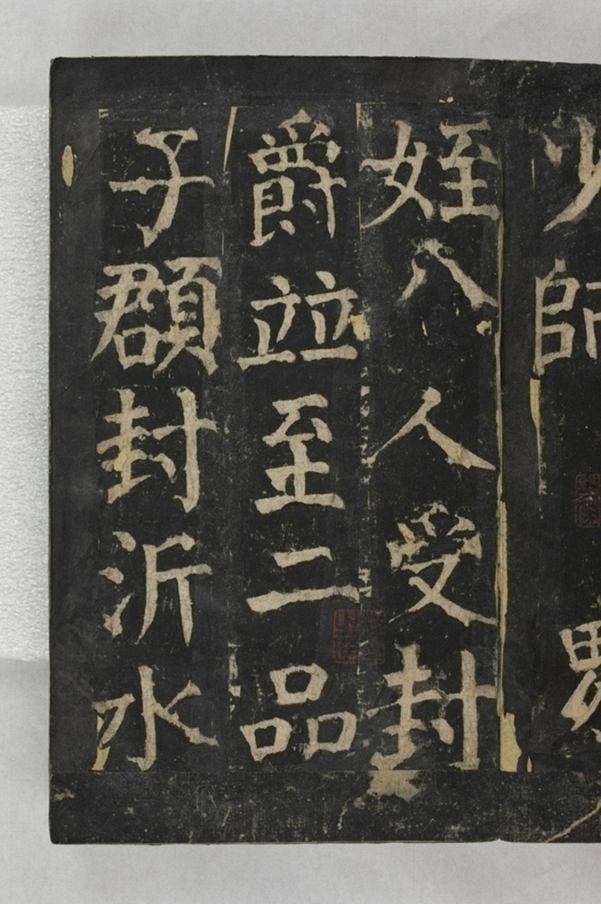 少師
姪八人受封
爵竝至二品
子頵封沂水